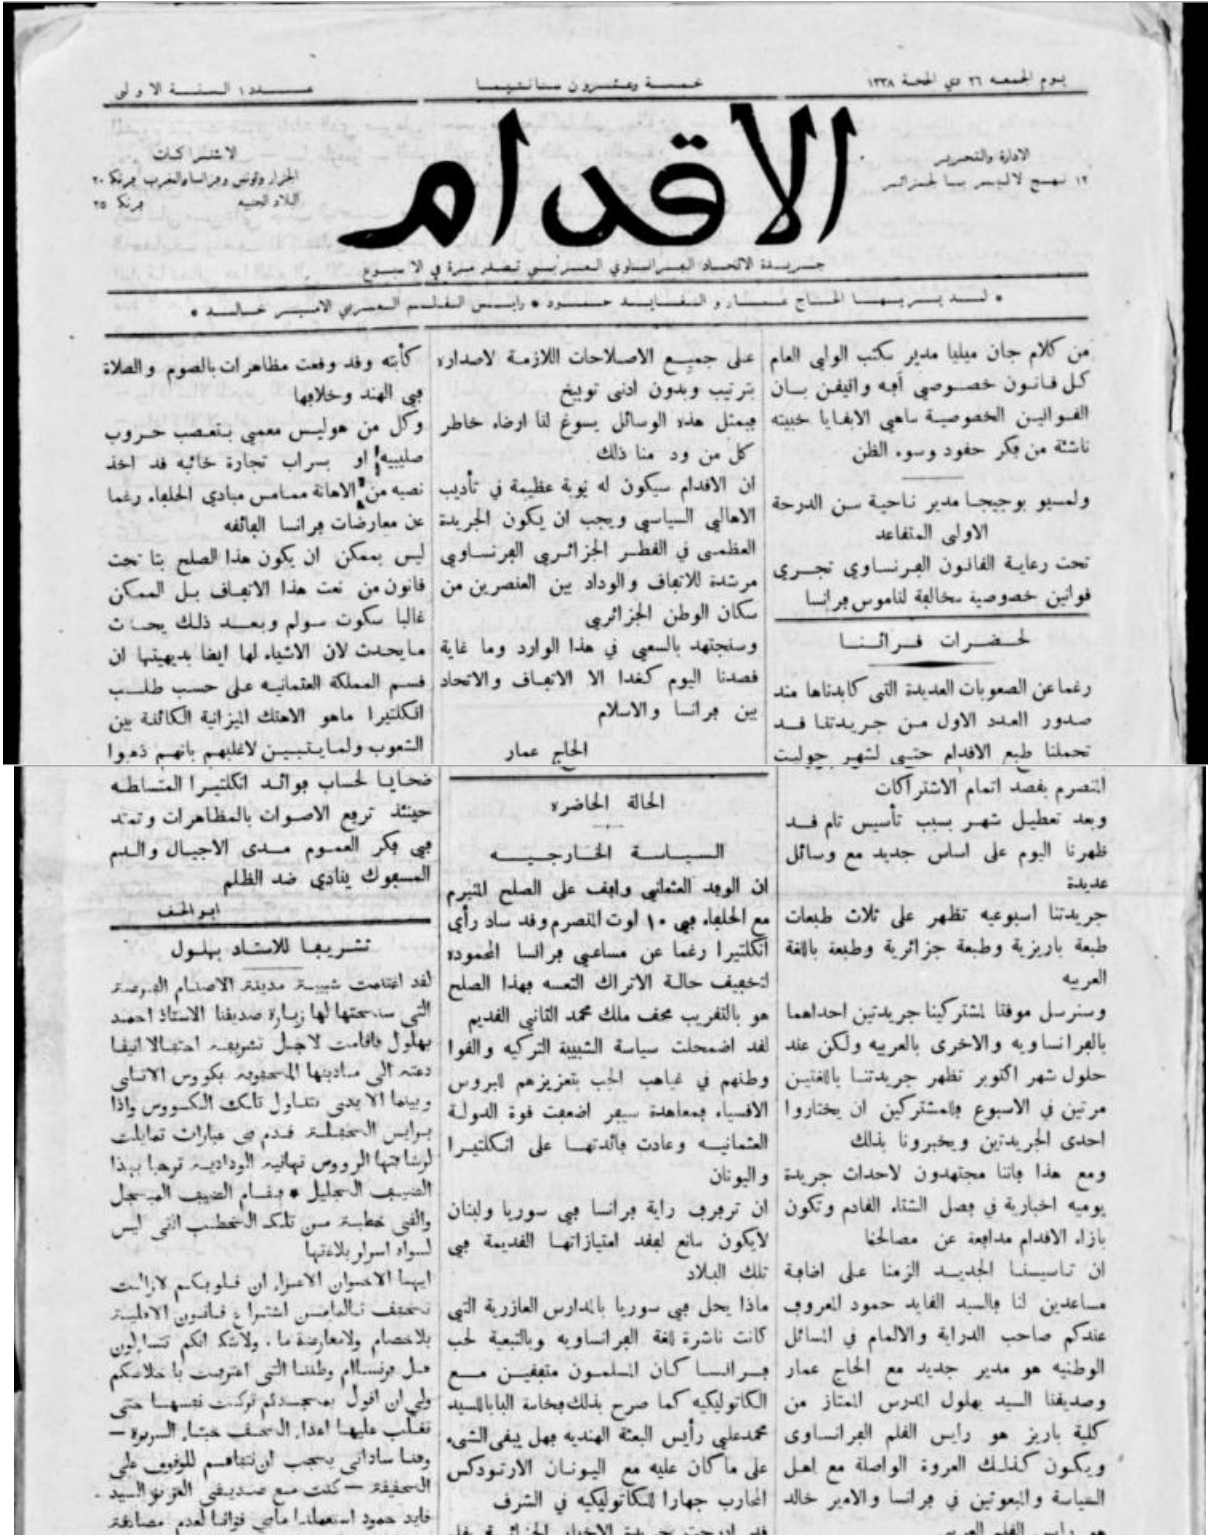 يوم الجمعه ٢٦ ذي الحجة ١٣٣٨
خمسة وعشرون سنانتيما
عدد ١ السنة الاولى
الادارة والتحرير
١٢ نهج لاليير بالجزائر
الاقدام
الاشتراكات
الجزائر وتونس وڢرانسا والمغرب ڢرنكا ٢٠
البلاد اجنبيه ڢرنكا ٢٥
جريدة الاتحاد الڢرانساوي العربي تصدر مرة في الاسبوع
* لمديريها الحاج عمار والفايد حمود * رايس الفلم العربي الامير خالد *
من كلام جان ميليا مدير مكتب الوالي العام
كل فانون خصوصي آڢه واليفن بان
الفوانين الخصوصية ماهي الابفايا خبيثه
ناشئة من ڢكر حفود وسوء الظن
ولمسيو بوجيجا مدير ناحية من الدرجة
الاولى المتفاعد
تحت رعاية الفانون الڢرنساوي تجري
فوانين خصوصية مخالڢة لناموس ڢرانسا
لحضرات فرائنا
رغماعن الصعوبات العديدة التى كابدناها منذ
صدور العدد الاول من جريدتنا فد
تحملنا طبع الافدام حتى لشهر جوليت
المنصرم بفصد اتمام الاشتراكات
وبعد تعطيل شهر بسبب تأسيس تام فد
ظهرنا اليوم على اساس جديد مع وسائل
عديدة
جريدتنا اسبوعيه تظهر على ثلاث طبعات
طبعة باريزية وطبعة جزائرية وطبعة باللغة
العربيه
وسنرسل موفتا لمشتركينا جريدتين احداهما
بالڢرانساويه والاخرى بالعربيه ولكن عند
حلول شهر اكتوبر تظهر جريدتنا باللغتين
مرتين في الاسبوع ڢالمشتركين ان يختاروا
احدى الجريدتين ويخبرونا بذلك
ومع هذا ڢاننا مجتهدون لاحداث جريدة
يوميه اخبارية في ڢصل الشتاء الفادم وتكون
بازاء الافدام مداڢعة عن مصالحنا
ان تاسيسنا الجديد الزمنا على اضاڢة
مساعدين لنا ڢالسيد الفايد حمود المعروڢ
عندكم صاحب الدراية والالمام في المسائل
الوطنيه هو مدير جديد مع الحاج عمار
وصديفنا السيد بهلول المدرس الممتاز من
كلية باريز هو رايس الفلم الڢرانساوى
ويكون كذلك العروة الواصلة مع اهل
السياسة والمبعوثين في ڢرانسا والامير خالد
هو رايس الفلم العربي
على جميع الاصلاحات اللازمة لاصداره
بترتيب وبدون ادنى توبيخ
ڢبمثل هذه الوسائل يسوغ لنا ارضاء خاطر
كل من ود منا ذلك
ان الافدام سيكون له نوبة عظيمة في تأديب
الاهالي السياسي ويجب ان يكون الجريدة
العظمى في الفطر الجزائري الڢرنساوي
مرشدة للاتڢاف والوداد بين العنصرين من
سكان الوطن الجزائري
وسنجتهد بالسعي في هذا الوارد وما غاية
فصدنا اليوم كغدا الا الاتڢاف والاتحاد
بين ڢرانسا والاسلام
الحاج عمار
الحالة الحاضره
السياسة الخارجيه
ان الوڢد العثماني واڢف على الصلح المنبرم
مع الحلڢاء ڢي ١٠ اوت المنصرم وفد ساد رأي
انكلتيرا رغما عن مساعي ڢرانسا المحموده
لتخڢيف حالة الاتراك التعسه ڢهذا الصلح
هو بالتفريب محف ملك محمد الثاني الفديم
لفد اضمحلت سياسة الشبيبة التركيه والفوا
وطنهم في غياهب الجب بتعزيزهم للبروس
الافسياء ڢبمعاهدة سيڢر اضعڢت فوة الدولة
العثمانيه وعادت ڢائدتها على انكلتيرا
واليونان
ان ترڢرڢ راية ڢرانسا ڢي سوريا ولبنان
لايكون مانع لڢفد امتيازاتها الفديمة ڢي
تلك البلاد
ماذا يحل ڢي سوريا بالمدارس العازرية التي
كانت ناشرة للغة الڢرانساويه وبالتبعية لحب
ڢرانسا كان المسلمون متڢفين مع
الكاثوليكيه كما صرح بذلك ڢخامة البابا للسيد
محمدعلي رأيس البعثة الهنديه ڢهل يبفى الشيء
على ماكان عليه مع اليونان الارتودكس
المحارب جهارا للكاثوليكيه في الشرف
كأبته وفد وفعت مظاهرات بالصوم والصلاة
ڢي الهند وخلاڢها
وكل من هوليس معمي بتعصب حروب
صليبيه او بسراب تجارة خائبه فد اخذ
نصيبه من الاهانة ممامس مبادي الحلڢاء رغما
عن معارضات ڢرانسا الڢائفه
ليس بممكن ان يكون هذا الصلح بتا تحت
فانون من نعت هذا الاتڢاف بل الممكن
غالبا سكوت مولم وبعد ذلك يحدث
مايحدث لان الاشياء لها ايضا بديهيتها ان
فسم المملكة العثمانيه على حسب طلب
انكلتيرا ماهو الاهتك الميزانية الكائنة بين
الشعوب ولما يتبين لاغلبهم بانهم ذهبوا
ضحايا لحساب ڢوائد انكلتيرا المتسلطه
حينئذ ترڢع الاصوات بالمظاهرات وتمتد
ڢي ڢكر العموم مدى الاجيال والدم
المسڢوك ينادي ضد الظلم
ابوالحف
تشريڢا للاستاد بهلول
لفد اغتنمت شبيبة مدينة الاصنام الڢرصة
التى سمحتها لها زيارة صديفنا الاستاذ احمد
بهلول ڢافامت لاجل تشريڢه احتڢالا انيفا
دعته الى مأدبتها المحڢوڢة بكووس الاتاى
وبينما الايدى تتداول تلك الكووس واذا
برايس الحڢلة فدم ڢى عبارات تمايلت
لرشافتها الرووس تهانيه الودادية ترحبا بهذا
الضيڢ الجليل * ڢفام الضيڢ المبجل
والفى خطبة من تلك الخطب التى ليس
لسواه اسرار بلاغتها
ايها الاخوان الاعزاء ان فلوبكم لازالت
تخڢف تالمامن اشتراع فانون الاهلية
بلاخصام ولامعارضة ما . ولاشك انكم تتسالون
هل ڢرنساام وطننا التى اعترڢت باخلاصكم
ولى ان افول بمجدكم تركت نڢسها حتى
تغلب عليها اعداء الحف خبثاء السريرة —
وهنا ساداتى يجب ان نتڢاهم للوفوڢ على
الحفيفة — كنت مع صديفى العزيز السيد
فايد حمود استعملنا ماڢى فوانا لعدم مصادفة